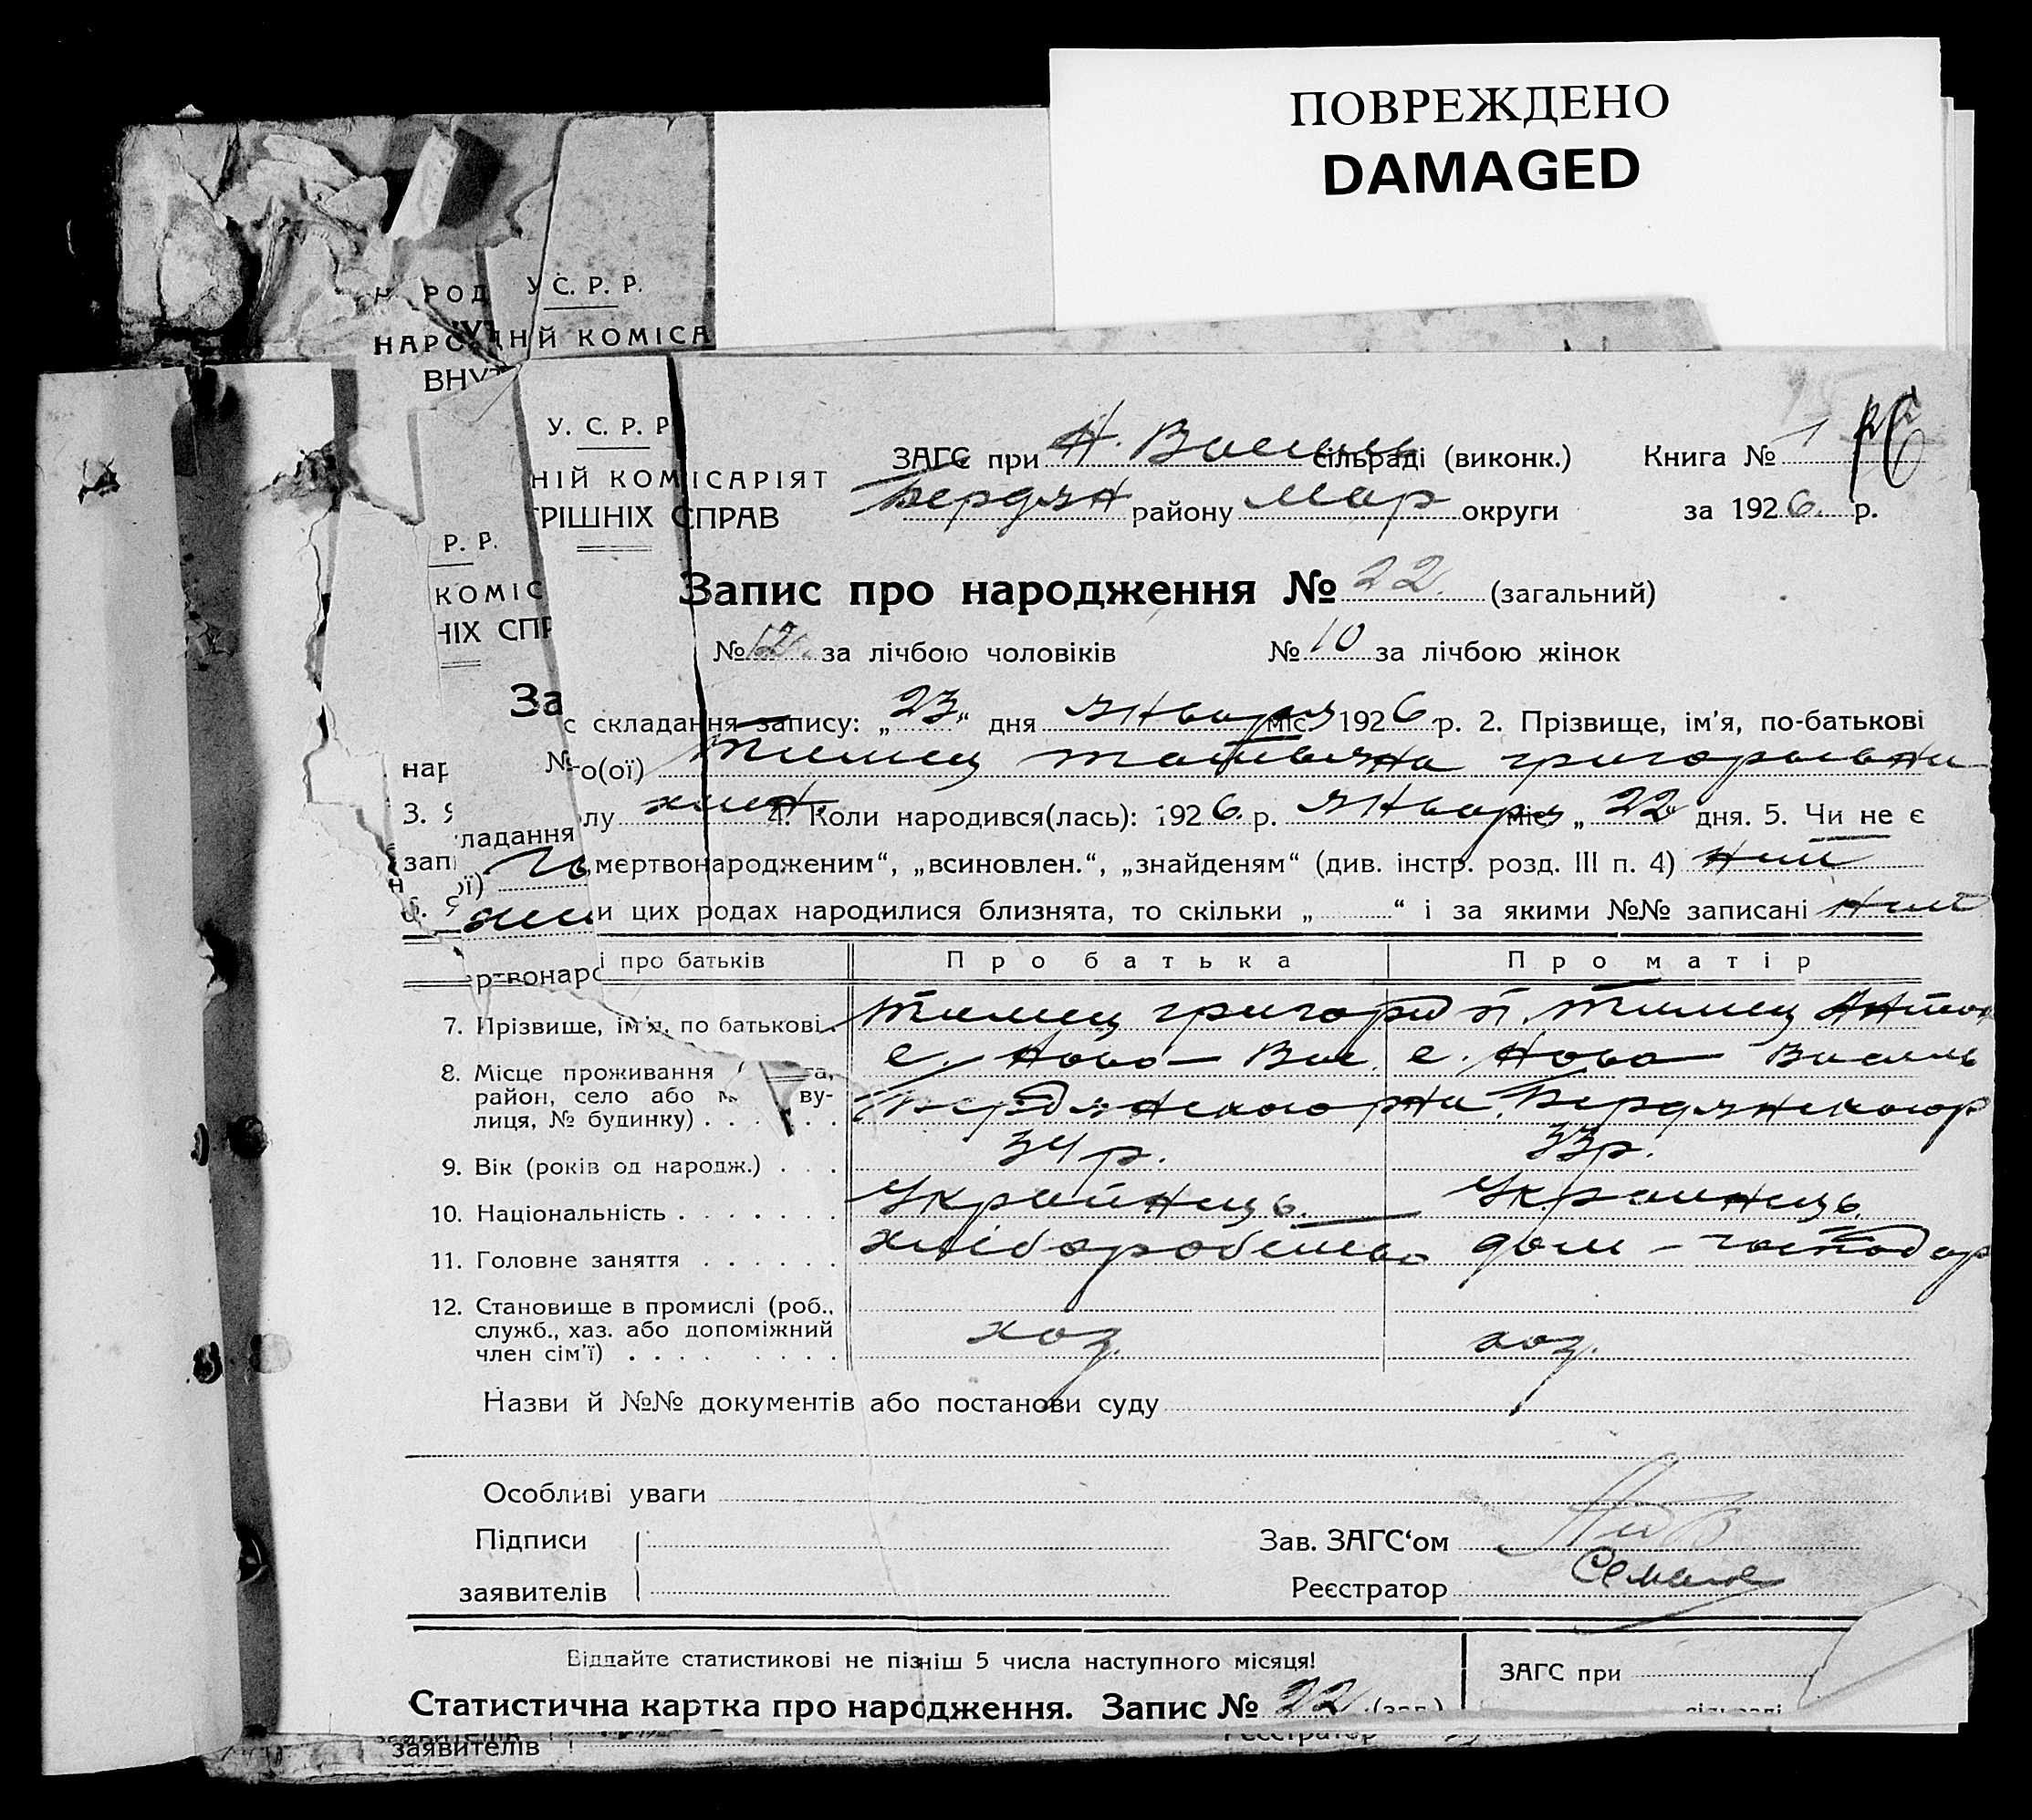 ПОВРЕЖДЕНО
DAMAGED
У С. Р. Р.
НАРОДНІЙ КОМІСА
ВНУТ
У. С. Р. Р
НІЙ КОМІСАРІЯТ
ТРІШНІХ СПРАВ
Р. Р.
КОМІС
НІХ СПР
За
ЗАГС при Н. Василь сільраді (виконк.) Книга № 1
Бердян району Мар округи за 1926 р.
Запис про народження № 22 (загальний)
№ 12 за лічбою чоловіків № 10 за лічбою жінок
с складання запису: „23“ дня Января міс. 1926 р. 2. Прізвище, ім'я, по-батькові
нар №-о(ої) Тимец Татьяна Григорьевни
3. Я лу жин. 4. Коли народився(лась): 1926 р. Января міс. „22“ дня. 5. Чи не є
ладання
запи мертвонародженим“, „всиновлен.“, „знайденям“ (див. інстр. розд. III п. 4) ний
6. Я и цих родах народилися близнята, то скільки „ “ і за якими №№ записані ний
і про батьків Про батька Про матір
ертвонаро
7. Прізвище, ім'я, по батькові. Тимец Григорій П. Тимец Антон
8. Місце проживання га, с. Ново-Вас. с. Ново Василь
район, село або м ву- Бердянського рна. Бердянського р
лиця, № будинку)
9. Вік (років од народж.) 34 р. 33 р.
10. Національність Українець. Украинець.
11. Головне заняття хліборобство дом-господар
12. Становище в промислі (роб.,
служб., хаз. або допоміжний хоз. хоз.
член сім'ї)
Назви й №№ документів або постанови суду
Особливі уваги
Підписи Зав. ЗАГС'ом
заявителів Реєстратор
Віддайте статистикові не пізніш 5 числа наступного місяця! ЗАГС при
Статистична картка про народження. Запис № 22 (заг.) сільраді
заявителів Реєстратор